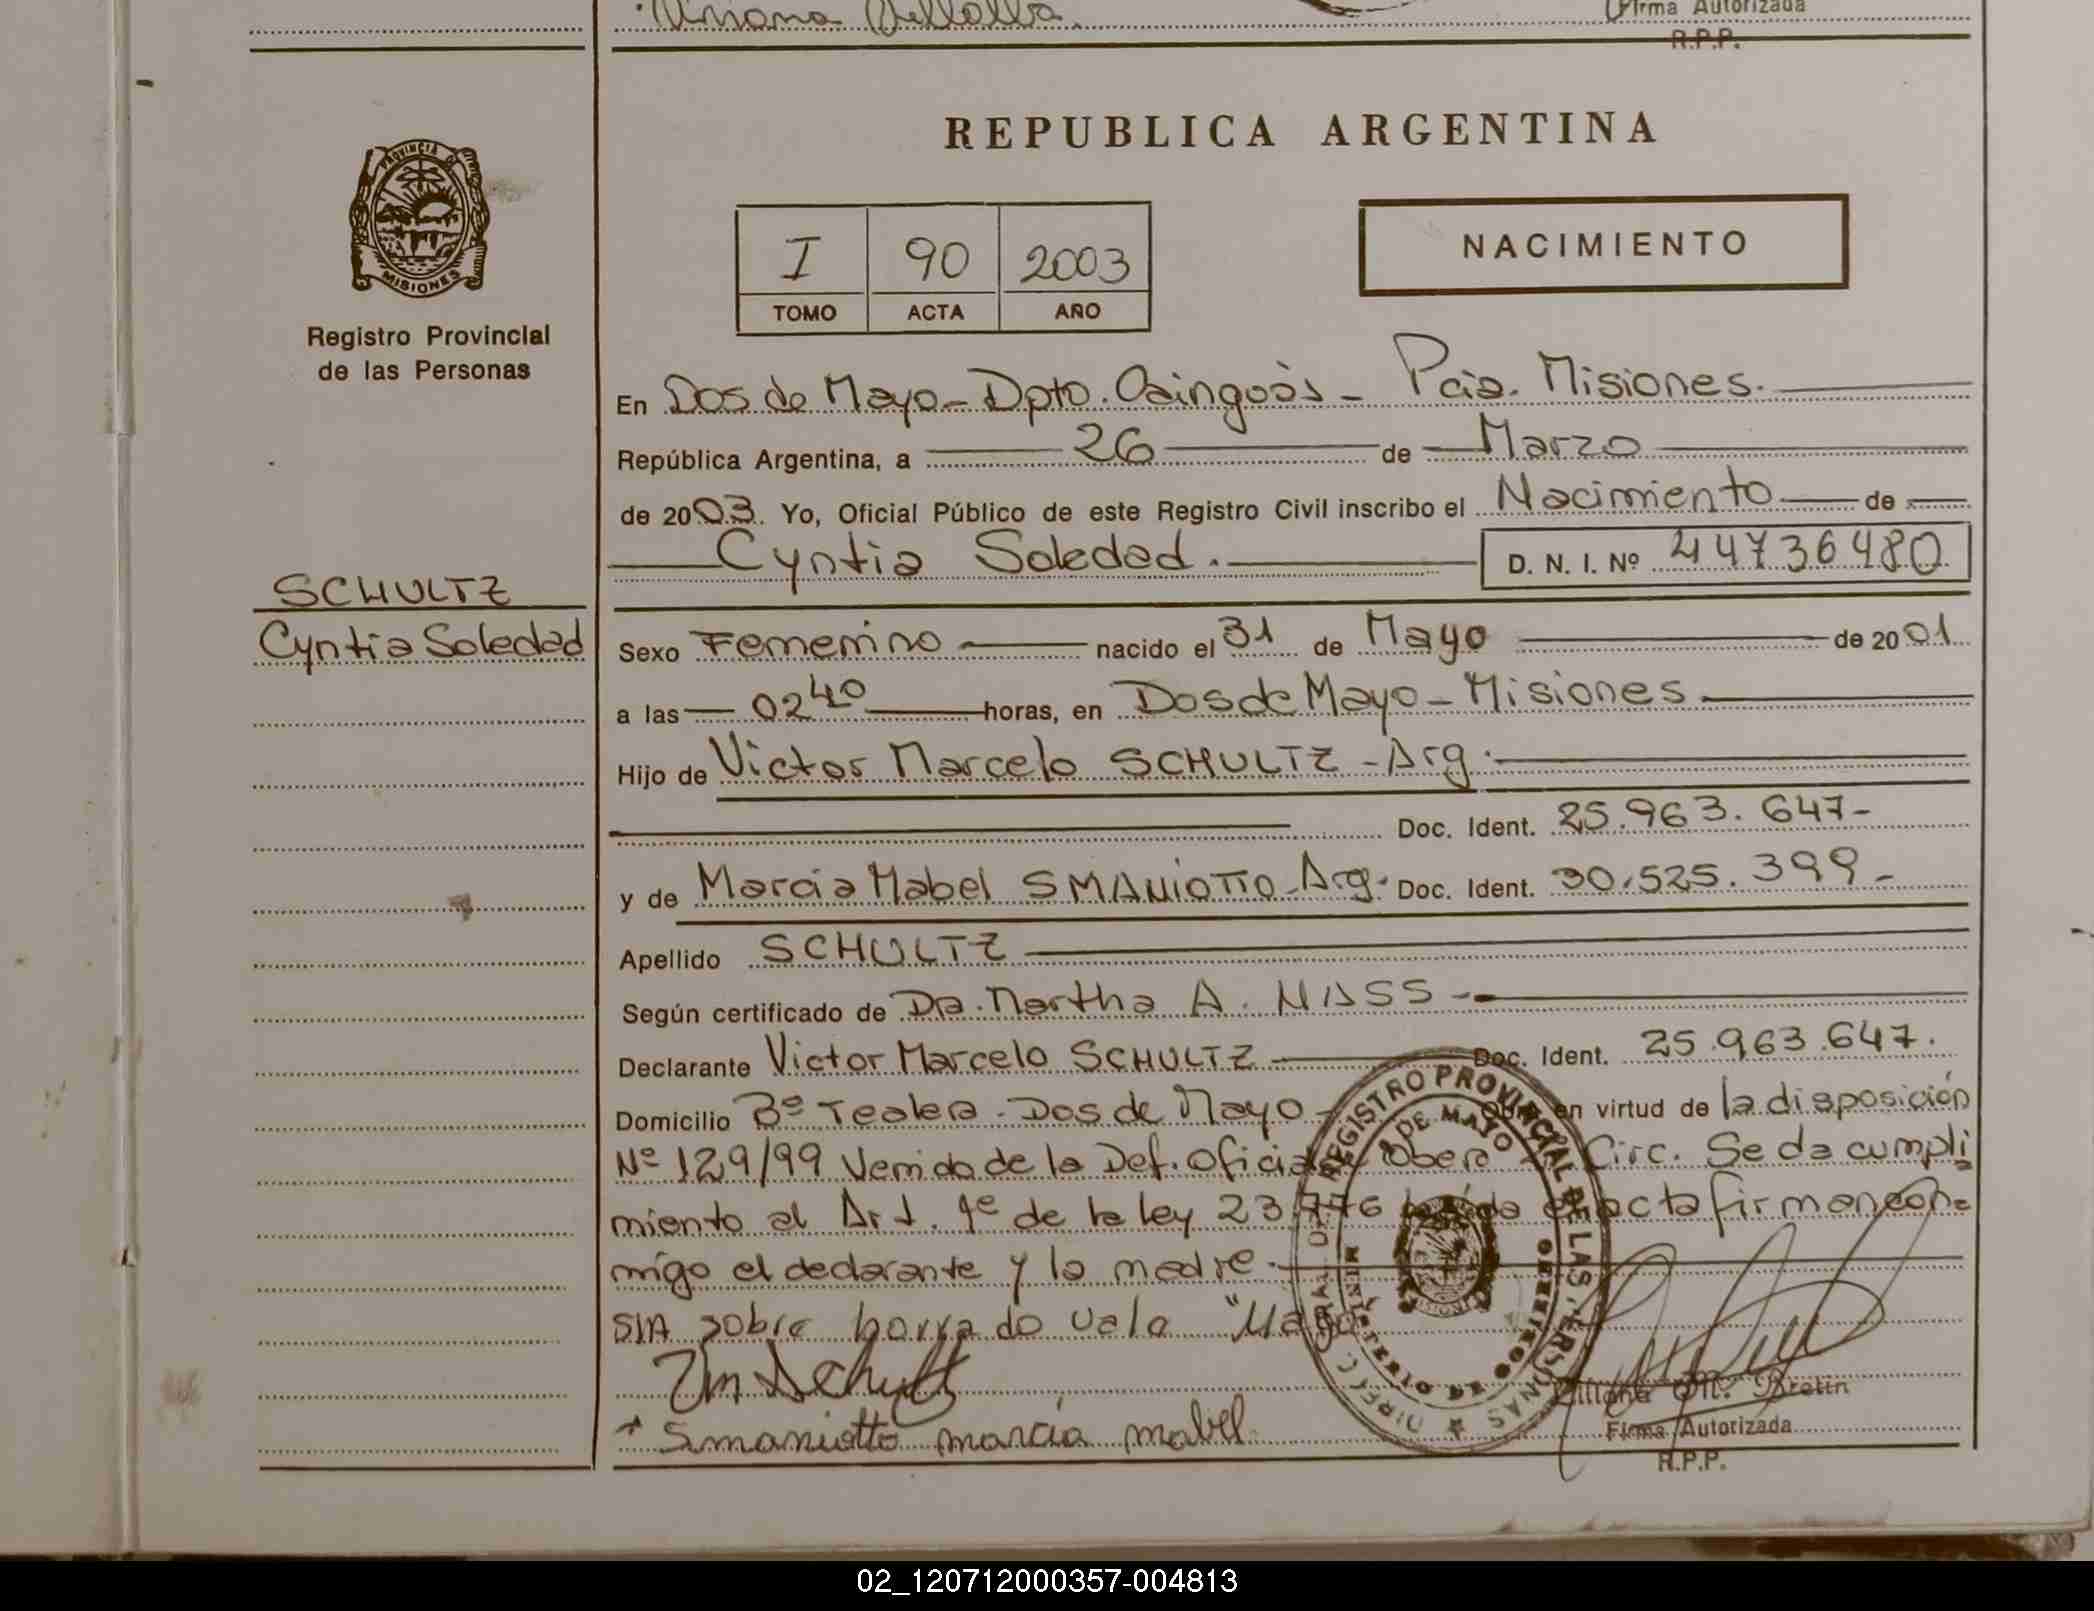 Firma Autorizada
R.P.P.
PROVINCIA DE
MISIONES
Registro Provincial
de las Personas
SCHULTZ
Cyntia Soledad
REPUBLICA ARGENTINA
I 90 2003
TOMO ACTA AÑO
NACIMIENTO
En Dos de Mayo - Dpto. Cainguás - Pcia. Misiones.
República Argentina, a 26 de Marzo
de 2003. Yo, Oficial Público de este Registro Civil inscribo el Nacimiento de
Cyntia Soledad. D. N. I. Nº 44736480
Sexo Femenino nacido el 31 de Mayo de 2001
a las 02 40 horas, en Dos de Mayo - Misiones
Hijo de Victor Marcelo SCHULTZ - Arg.
Doc. Ident. 25.963.647-
y de Marcia Mabel SMANIOTTO - Arg. Doc. Ident. 30.525.399-
Apellido SCHULTZ
Según certificado de Dra. Martha A. NASS -
Declarante Victor Marcelo SCHULTZ Doc. Ident. 25.963.647.
Domicilio Bº Tealera - Dos de Mayo - Obra en virtud de la disposición
Nº 129/99 Venida de la Def. Oficial Oberá Circ. Se da cumpli
miento al Art. 1º de la ley 23.776 leída el acta firman con-
migo el declarante y la madre.
S/A sobre borrado vale "Mayo"
Smaniotto marcia mabel
REGISTRO PROVINCIAL DE LAS PERSONAS
2 DE MAYO
MINISTERIO DE GOBIERNO
Liliana M. Bretin
Firma Autorizada
R.P.P.
02_120712000357-004813